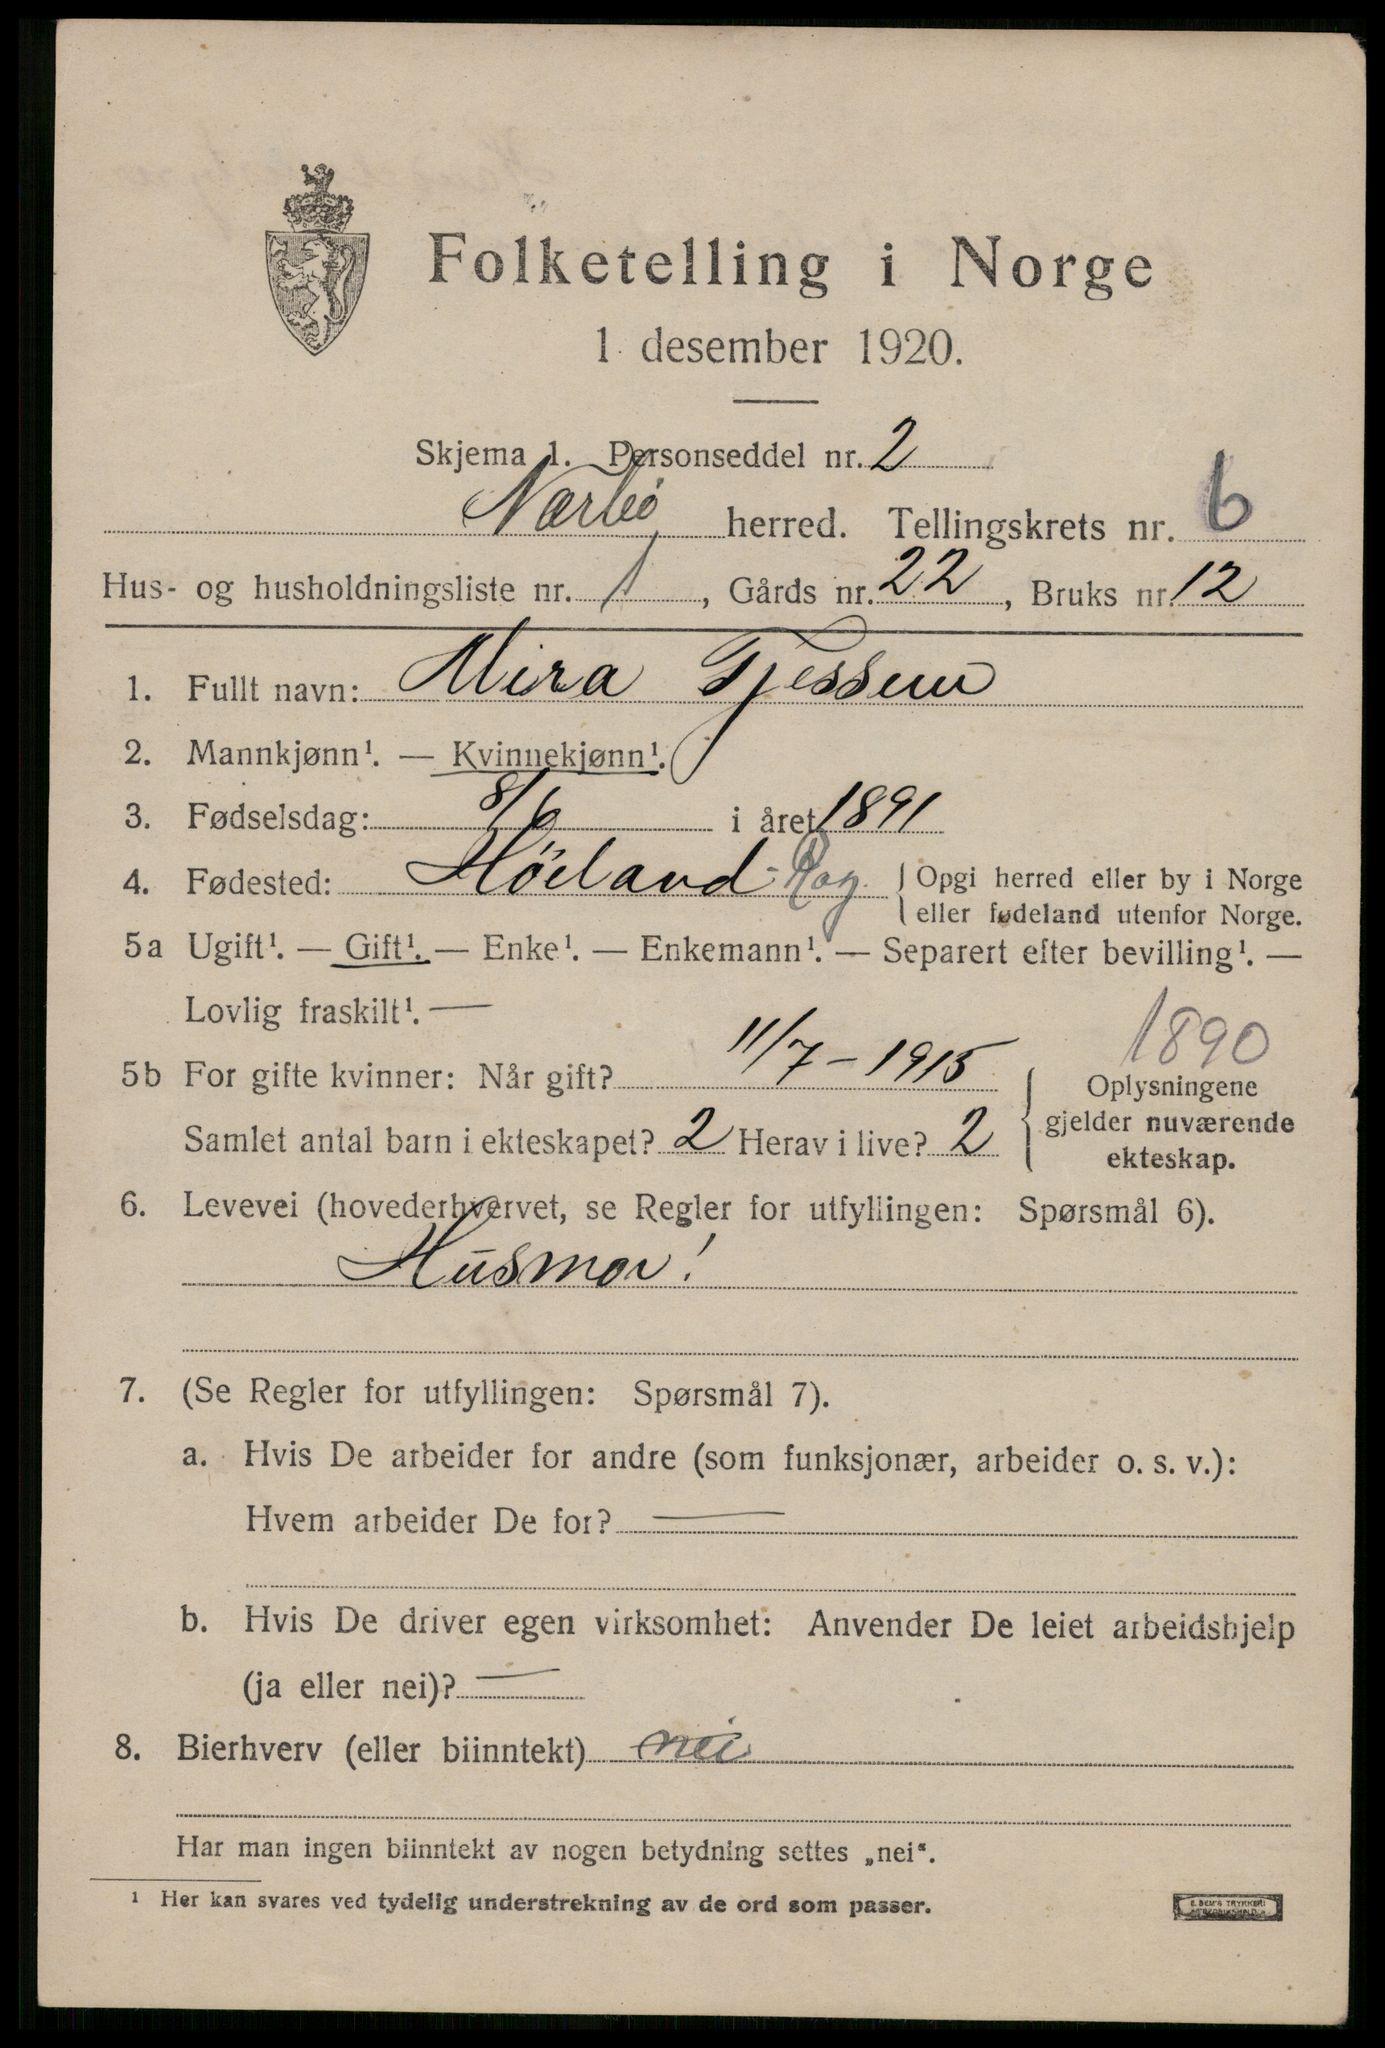 Folketelling i Norge
1. desember 1920.
Skjema 1. Personseddel nr. 2
Nærbö herred. Tellingskrets nr. 6
Hus- og husholdningsliste nr. 1, Gårds nr. 22, Bruks nr. 12
1. Fullt navn: Mira Tjessem
2. Mannkjønn¹. — Kvinnekjønn¹.
3. Fødselsdag: 8/6 i året 1891
4. Fødested: Höiland - Rog. Opgi herred eller by i Norge
eller fødeland utenfor Norge.
5a Ugift¹. — Gift¹. — Enke¹. — Enkemann¹. — Separert efter bevilling¹. —
Lovlig fraskilt¹. —
1890
5b For gifte kvinner: Når gift? 11/7 - 1915 Oplysningene
gjelder nuværende
Samlet antal barn i ekteskapet? 2 Herav i live? 2 ekteskap.
6. Levevei (hovederhvervet, se Regler for utfyllingen: Spørsmål 6).
Husmor!
7. (Se Regler for utfyllingen: Spørsmål 7).
a. Hvis De arbeider for andre (som funksjonær, arbeider o. s. v.):
Hvem arbeider De for? —
b. Hvis De driver egen virksomhet: Anvender De leiet arbeidshjelp
(ja eller nei)? —
8. Bierhverv (eller biinntekt) nei
Har man ingen biinntekt av nogen betydning settes „nei“.
¹ Her kan svares ved tydelig understrekning av de ord som passer.